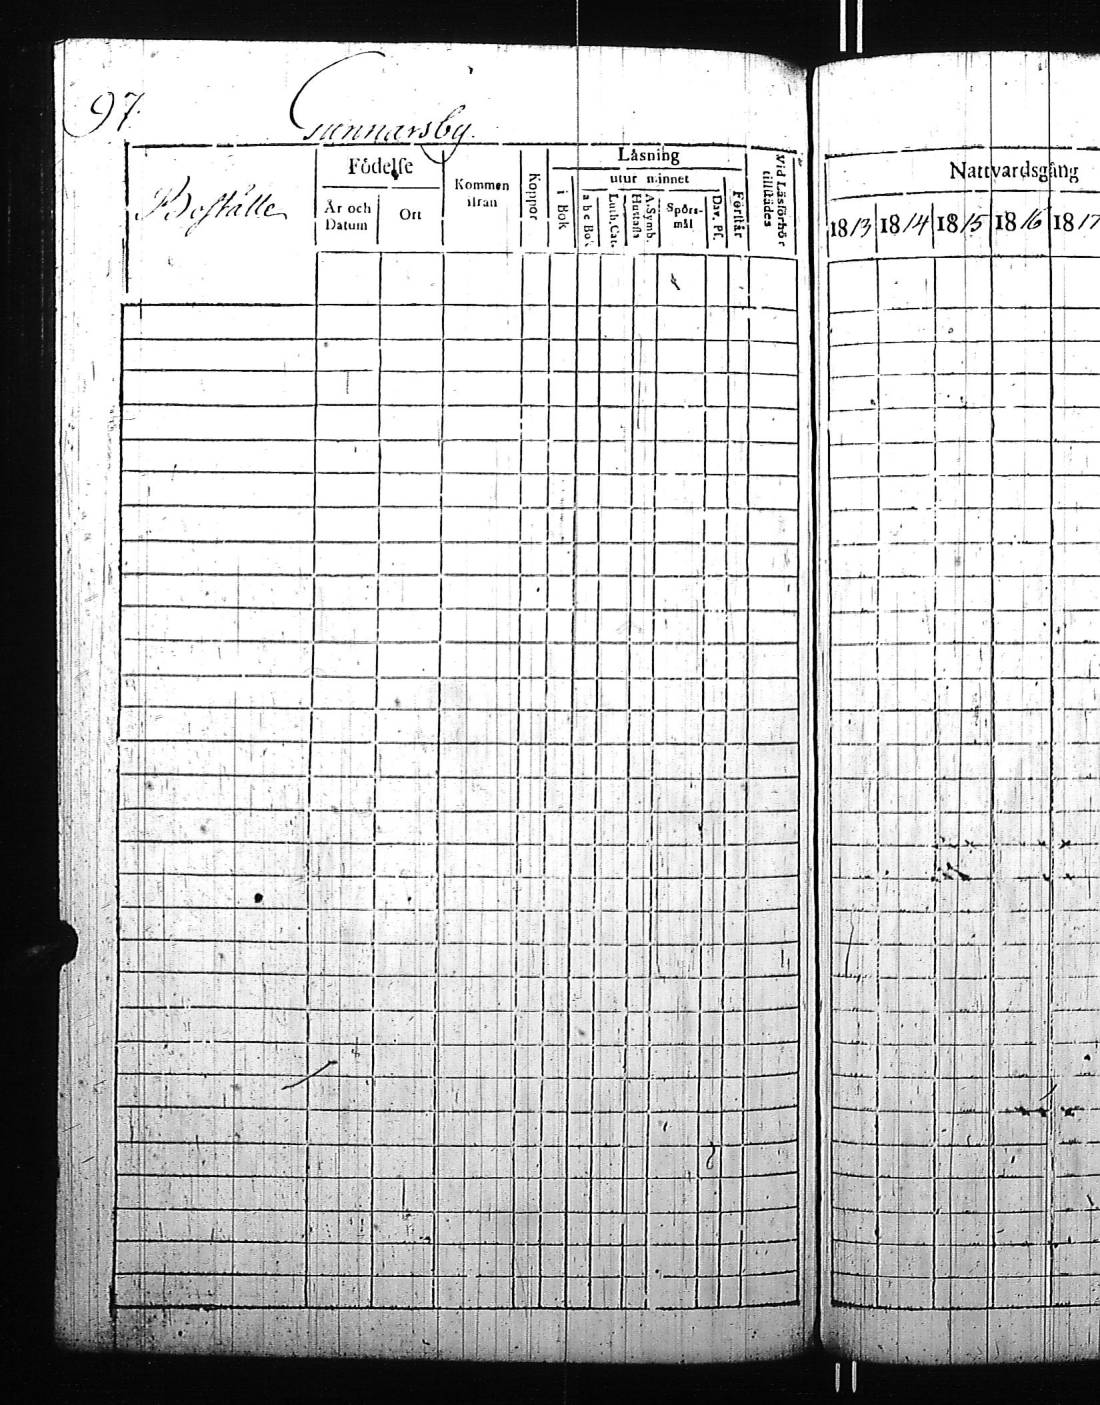 97.
Gunnarsby.
Boställe
Födelse
År och Datum
Ort
Kommen ifrån
Koppor
Läsning
i Bok
utur minnet
a b c Bok
Luth. Cat.
Hustafla
A. Symb.
Spörs-mål
Dav. Ps.
Förstår
Vid Läsförhör tillstädes
Nattvardsgång
1813 1814 1815 1816 1817